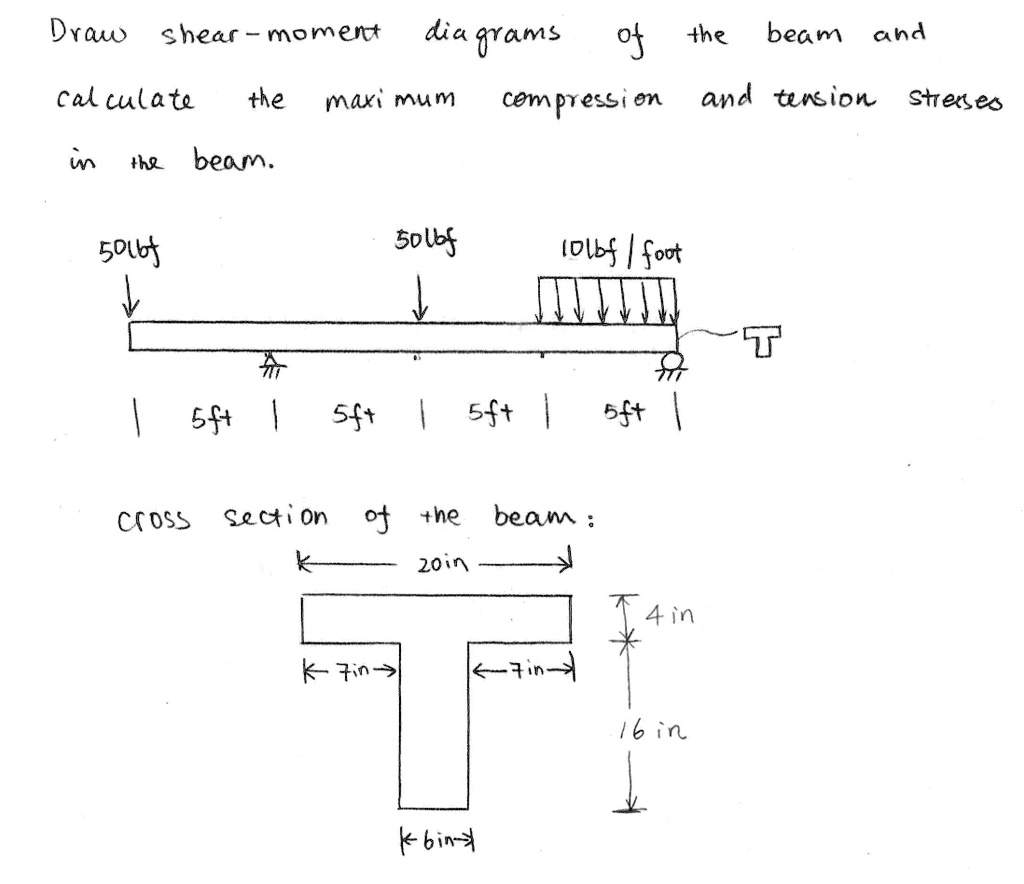 Draw shear-moment diagrams of the beam and
calculate the maximum compression and tension stresses
in the beam.
50lbf 50lbf 10lbf/foot
5ft 5ft 5ft 5ft
cross section of the beam:
20in
4in
7in 7in
16in
6in